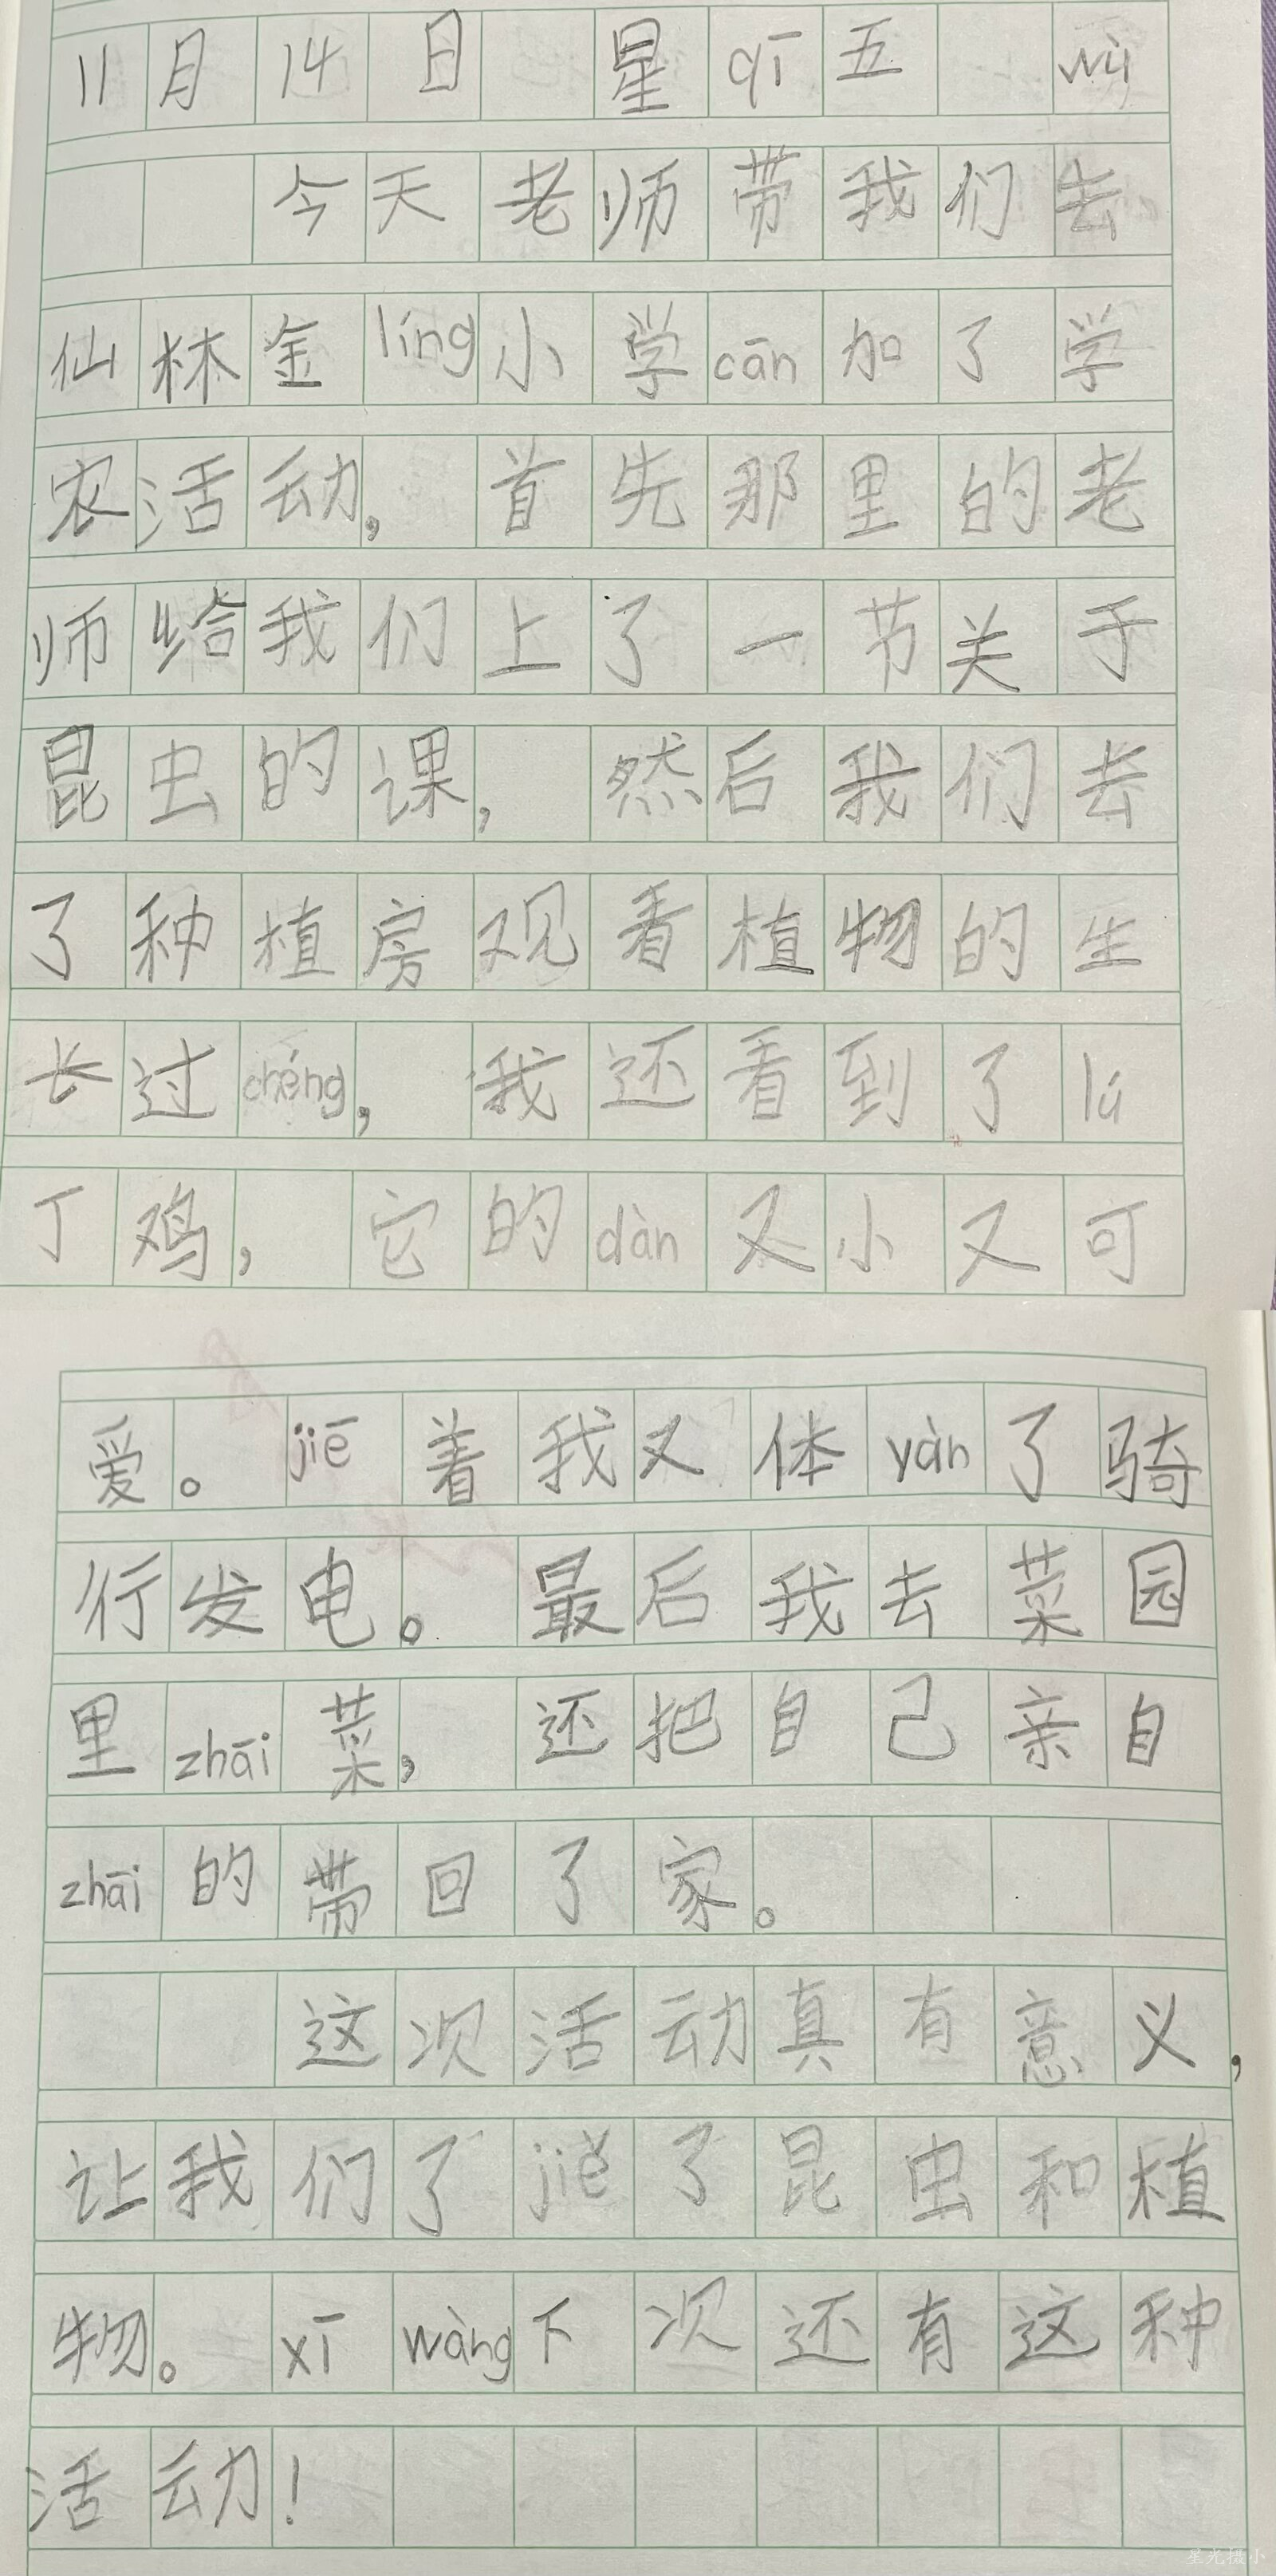 11月14日 星qī五 wù
今天老师带我们去
仙林金líng小学cān加了学
农活动，首先那里的老
师给我们上了一节关于
昆虫的课，然后我们去
了种植房观看植物的生
长过chéng，我还看到了lú
丁鸡，它的dàn又小又可
爱。jiē着我又体yàn了骑
行发电。最后我去菜园
里zhāi菜，还把自己亲自
zhāi的带回了家。
这次活动真有意义，
让我们了jiě了昆虫和植
物。xī wàng下次还有这种
活动！